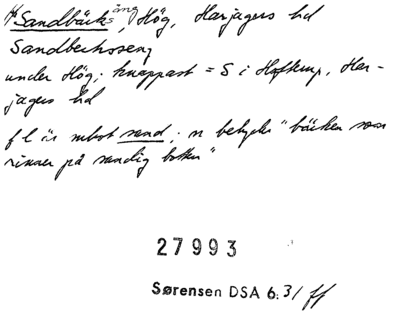 Sandbäcksäng, Hög, Harjagers hd
Sandbecksseng
under Hög; knappast = S i Hofterup, Har-
jagers hd
f l är subst sand; n betyder "bäcken som
rinner på sandig botten"
27993
Sørensen DSA 6:31 ff